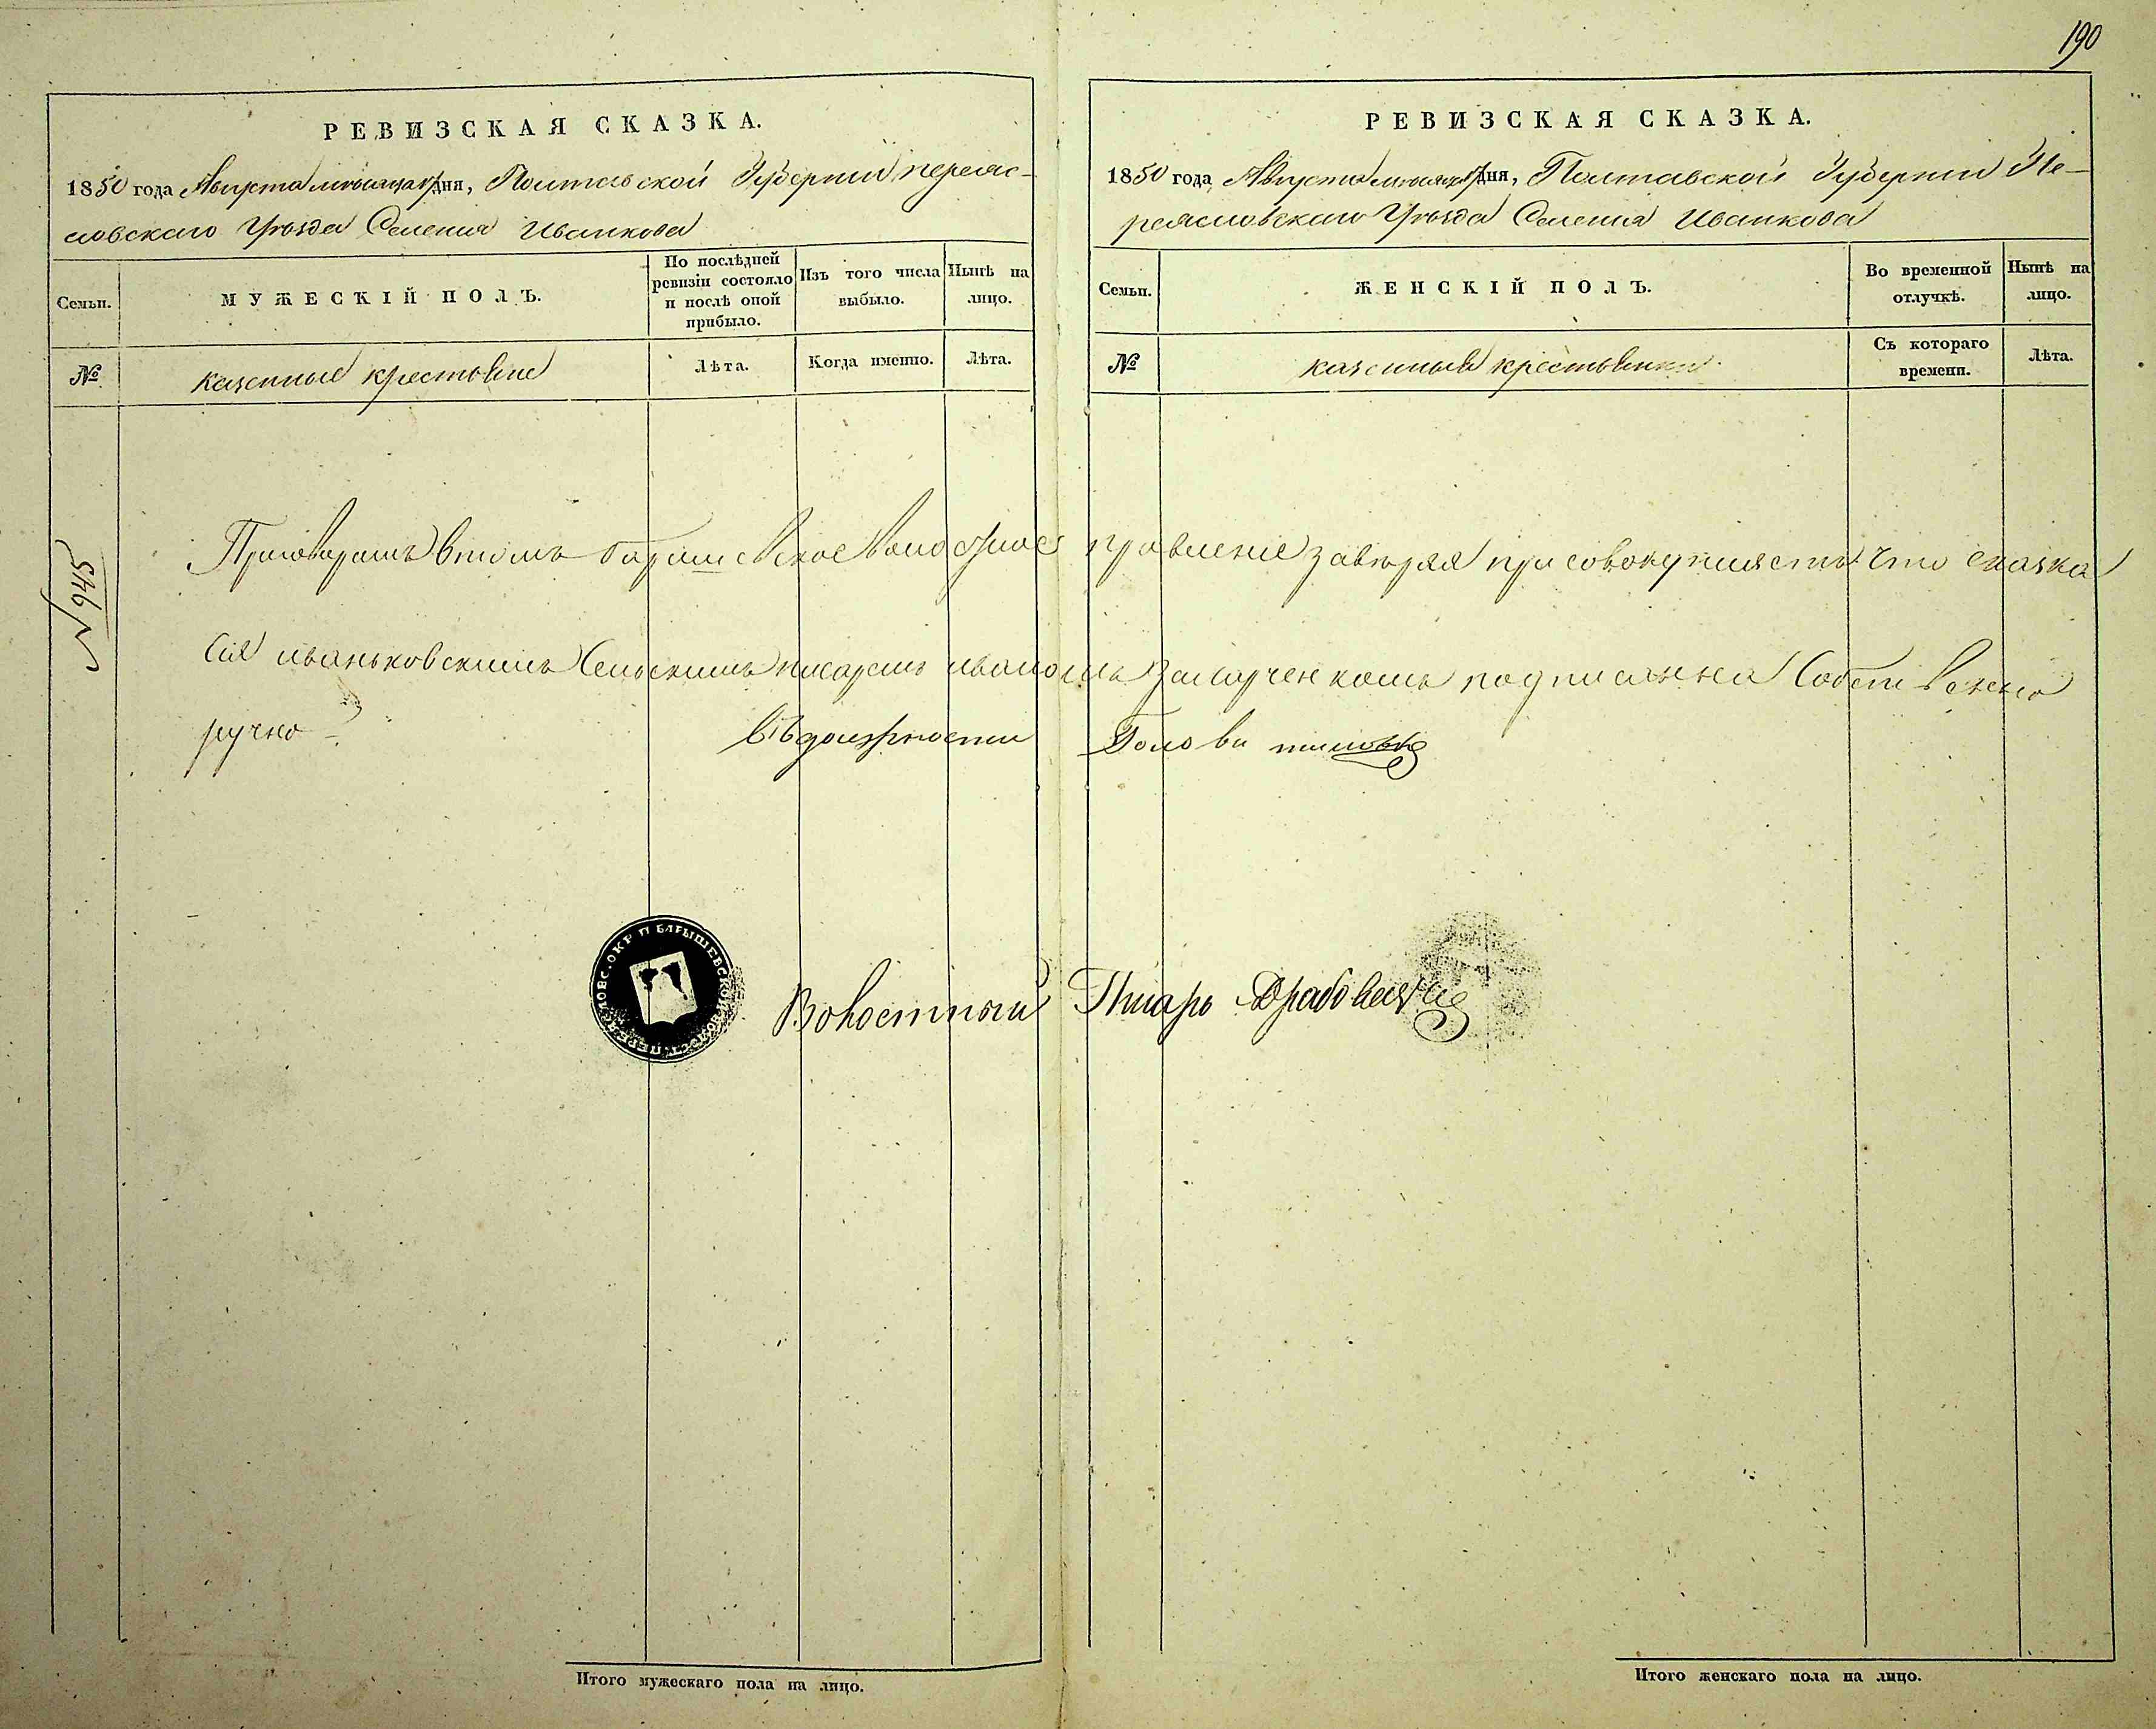 190
РЕВИЗСКАЯ СКАЗКА.
1850 года Августа месяца дня, Полтавской Губернии переяс-
ловского Уезда Селения Иванкова
Семьи.
МУЖЕСКІЙ ПОЛЪ.
По послѣдней ревизіи состояло и послѣ оной прибыло.
Изъ того числа выбыло.
Нынѣ на лицо.
№
казенные крестьяне
Лѣта.
Когда именно.
Лѣта.
РЕВИЗСКАЯ СКАЗКА.
1850 года Августа дня, Полтавской Губернии Пе-
реясловского Уезда Селения Иванкова
Семьи.
ЖЕНСКІЙ ПОЛЪ.
Во временной отлучкѣ.
Нынѣ на лицо.
№
казенныя крестьянки
Съ котораго времени.
Лѣта.
N 945
втомъ баришевское волостное правление завѣряя присовокупляетъ что сказка
Сия иваньковскимъ Сельскимъ писаремъ иваномъ подписанна Собственно
ручно
Въ должности Голови
ПЕРЕЯСЛОВС. ОКР П БАРЫШЕВСКО
Волостный Писарь
Итого мужескаго пола на лицо.
Итого женскаго пола на лицо.